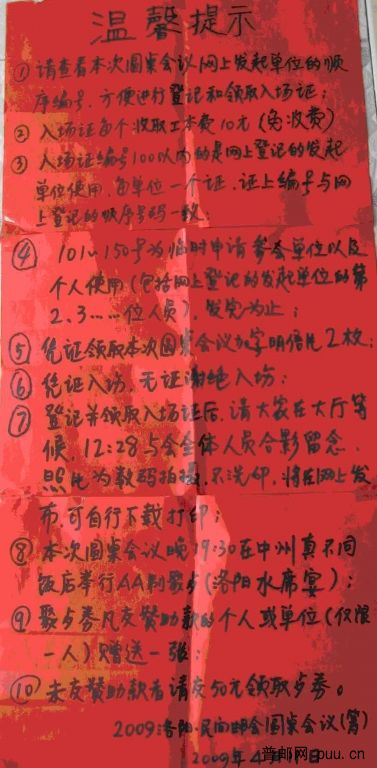 温馨提示
①请查看本次圆桌会议网上发起单位的顺
序编号,方便进行登记和领取入场证;
②入场证每个收取工本费10元(免收费)
③入场证编号100以内的是网上登记的发起
单位使用,每单位一个证,证上编号与网
上登记的顺序号码一致;
④101~150号为临时申请参会单位以及
个人使用(包括网上登记的发起单位的第
2.3……位人员),发完为止;
⑤凭证领取本次圆桌会议加字明信片2枚;
⑥凭证入场,无证谢绝入场;
⑦登记并领取入场证后,请大家在大厅等
候,12:28与会全体人员合影留念,
照片为数码拍摄,不洗印,将在网上发
布,可自行下载打印;
⑧本次圆桌会议晚19:30在中州真不同
饭店举行AA制聚歺(洛阳水席宴);
⑨聚歺券凡交赞助款的个人或单位(仅限
一人)赠送一张;
⑩未交赞助款者请交50元领取歺券。
2009洛阳·民间邮会圆桌会议(筹)
2009年4月 日
普邮网 puu.cn